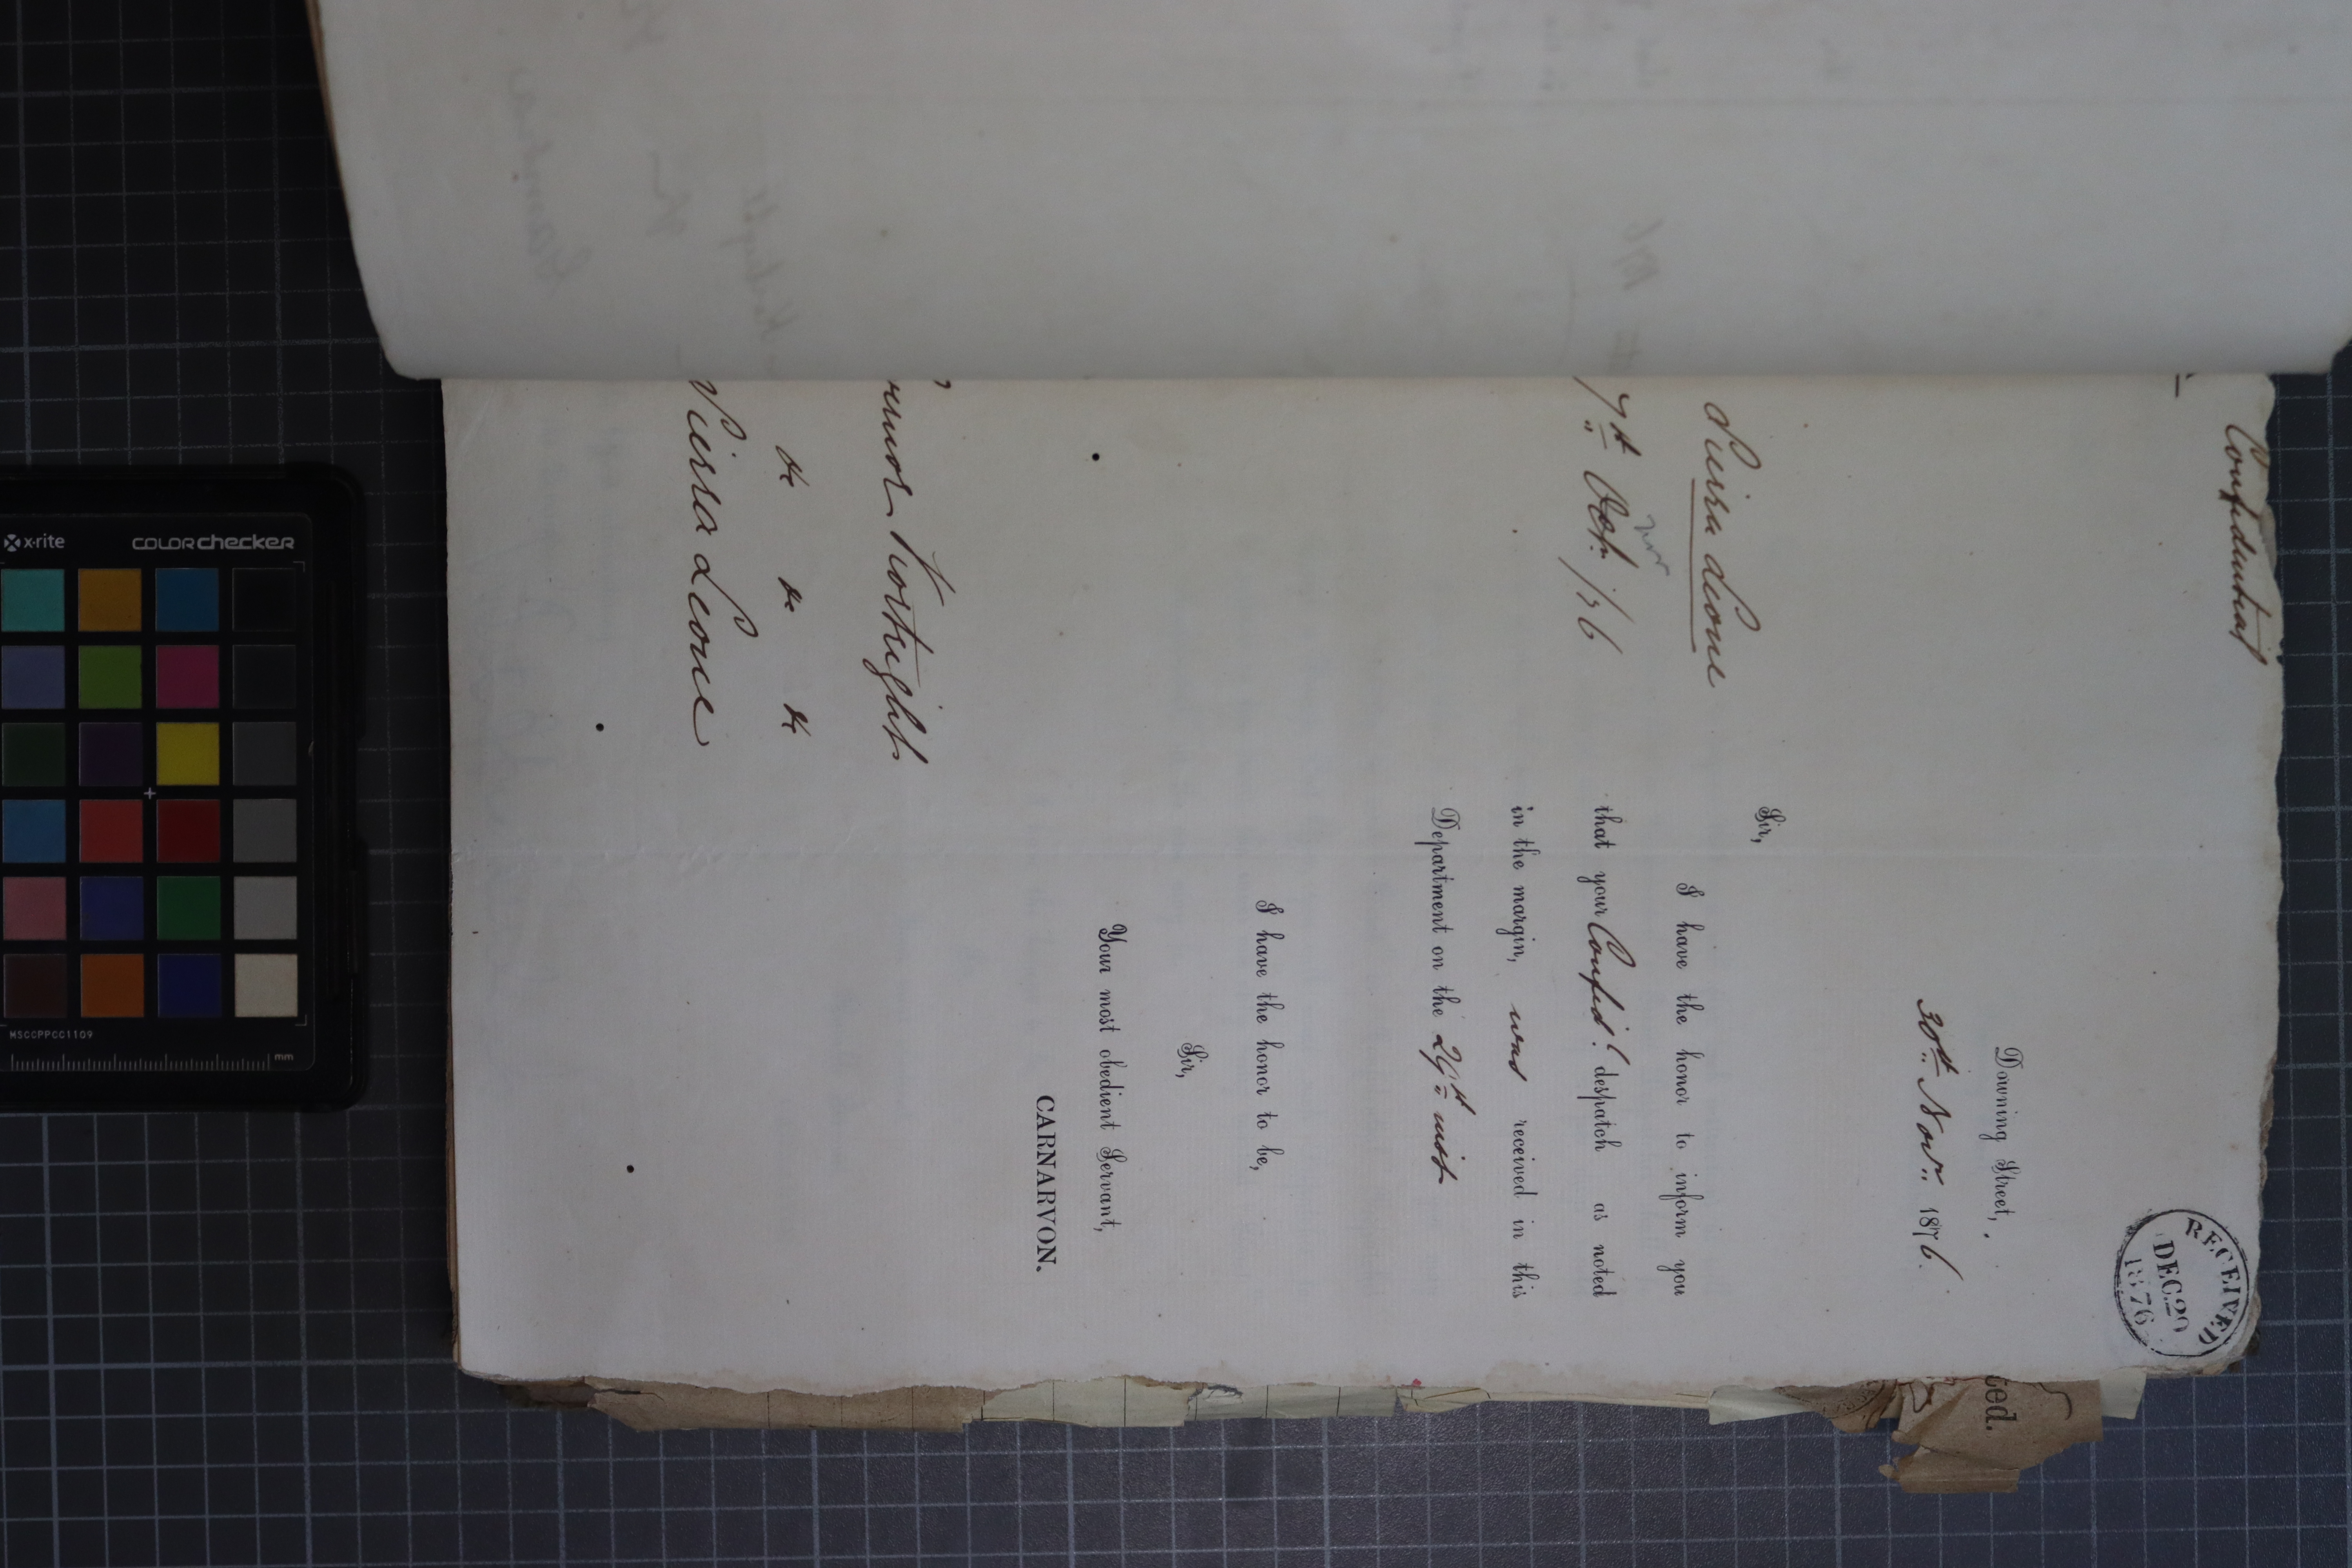 Confidential
RECEIVED
DEC 20
1876
Downing Street,
30th Novr. 1876.
Sierra Leone
7th Octr. /76
Novr
Sir,
I have the honor to inform you
that your Confid! despatch as noted
in the margin, was received in this
Department on the 29th inst
I have the honor to be,
Sir,
Your most obedient Servant,
CARNARVON.
rnor Kortright
&c &c &c
Sierra Leone
ted.
x-rite
COLORchecker
MSCCPPCC1109
mm